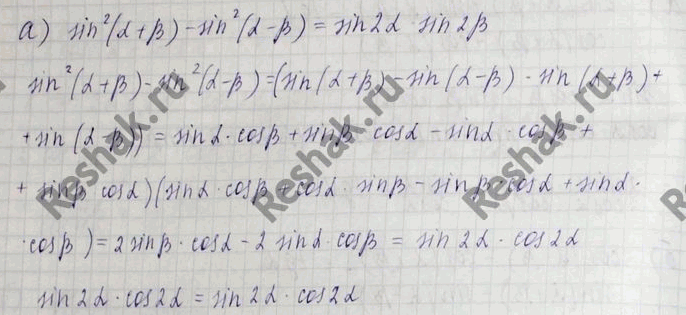 а) sin²(α+β)-sin²(α-β) = sin2α · sin2β
sin²(α+β)-sin²(α-β)=(sin(α+β)-sin(α-β) · sin(α+β)+
+sin(α-β)) = sinα·cosβ+sinβ·cosα-sinα·cosβ+
+ sinβ cosα)(sinα·cosβ+cosα·sinβ-sinβ·cosα+sinα·
·cosβ)=2sinβ·cosα-2sinα·cosβ = sin2α·cos2α
sin2α·cos2α = sin2α·cos2α
Reshak.ru
Reshak.ru
Reshak.ru